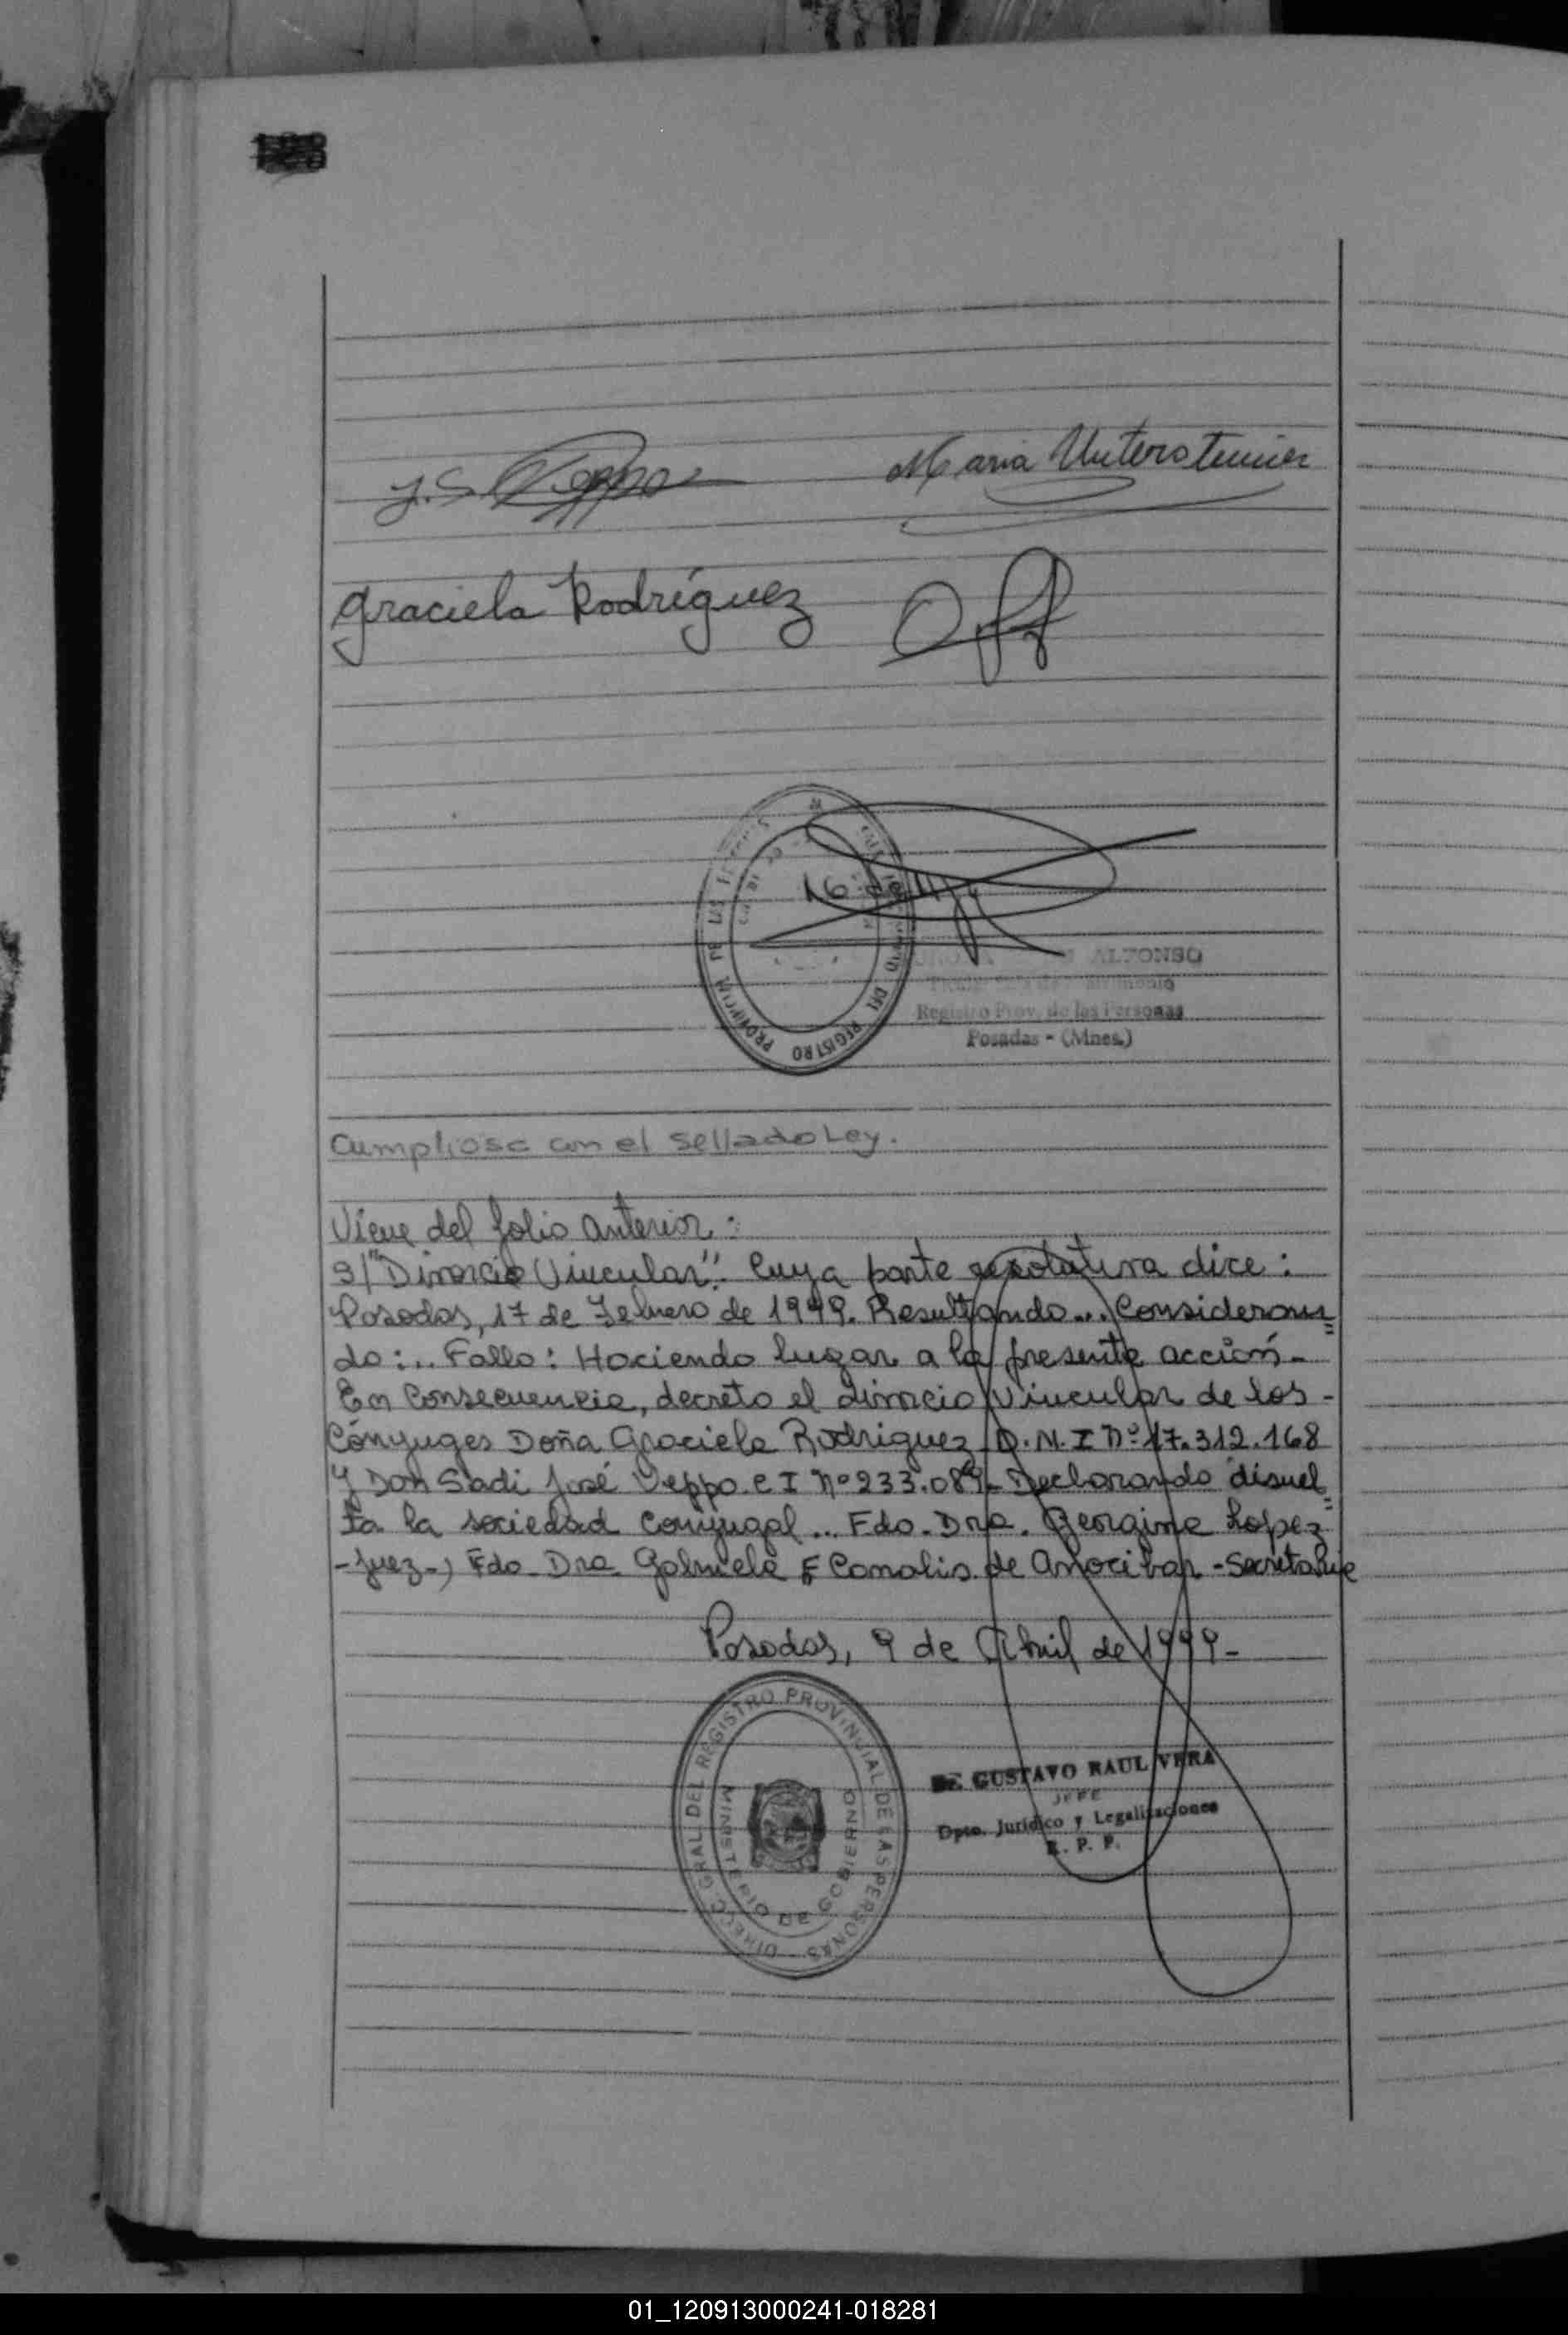 J.S. Veppo
Maria Untersteiner
Graciela Rodríguez
16
ALFONSO
Registro Prov. de las Personas
Posadas - (Mnes.)
PROVINCIAL DE LAS
DEL REGISTRO
Cumpliose con el sellado Ley.
Viene del folio anterior:
S/"Divorcio Vincular". Cuya parte resolutiva dice:
Posadas, 17 de Febrero de 1999. Resultando... Consideran=
do:.. Fallo: Haciendo lugar a la presente acción-
En Consecuencia, decreto el divorcio Vincular de los-
Cónyuges Doña Graciela Rodriguez D.N.I Nº 17.312.168
y Don Sadi José Veppo C I Nº 233.089- Declarando disuel=
ta la sociedad conyugal... Fdo. Dra. Georgina Lopez
-Juez-, Fdo Dra Gabriela F Canalis de Anocibar -Secretaria
Posadas, 9 de Abril de 1999-
DIRECC. GRAL. DEL REGISTRO PROVINCIAL DE LAS PERSONAS
MINISTERIO DE GOBIERNO
GUSTAVO RAUL VERA
JEFE
Dpto. Jurídico y Legalizaciones
R. P. P.
01_120913000241-018281